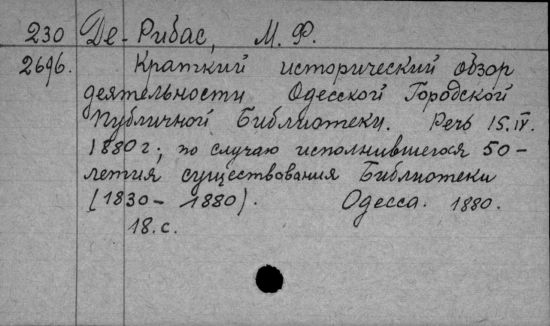 230 Де-Рибас, М. Ф.
2696. Краткий исторический обзор
деятельности Одесской Городской
Публичной Библиотеки. Речь 15.IV.
1880 г; по случаю исполнившегося 50-
летия существования Библиотеки
(1830-1880). Одесса. 1880.
18.с.